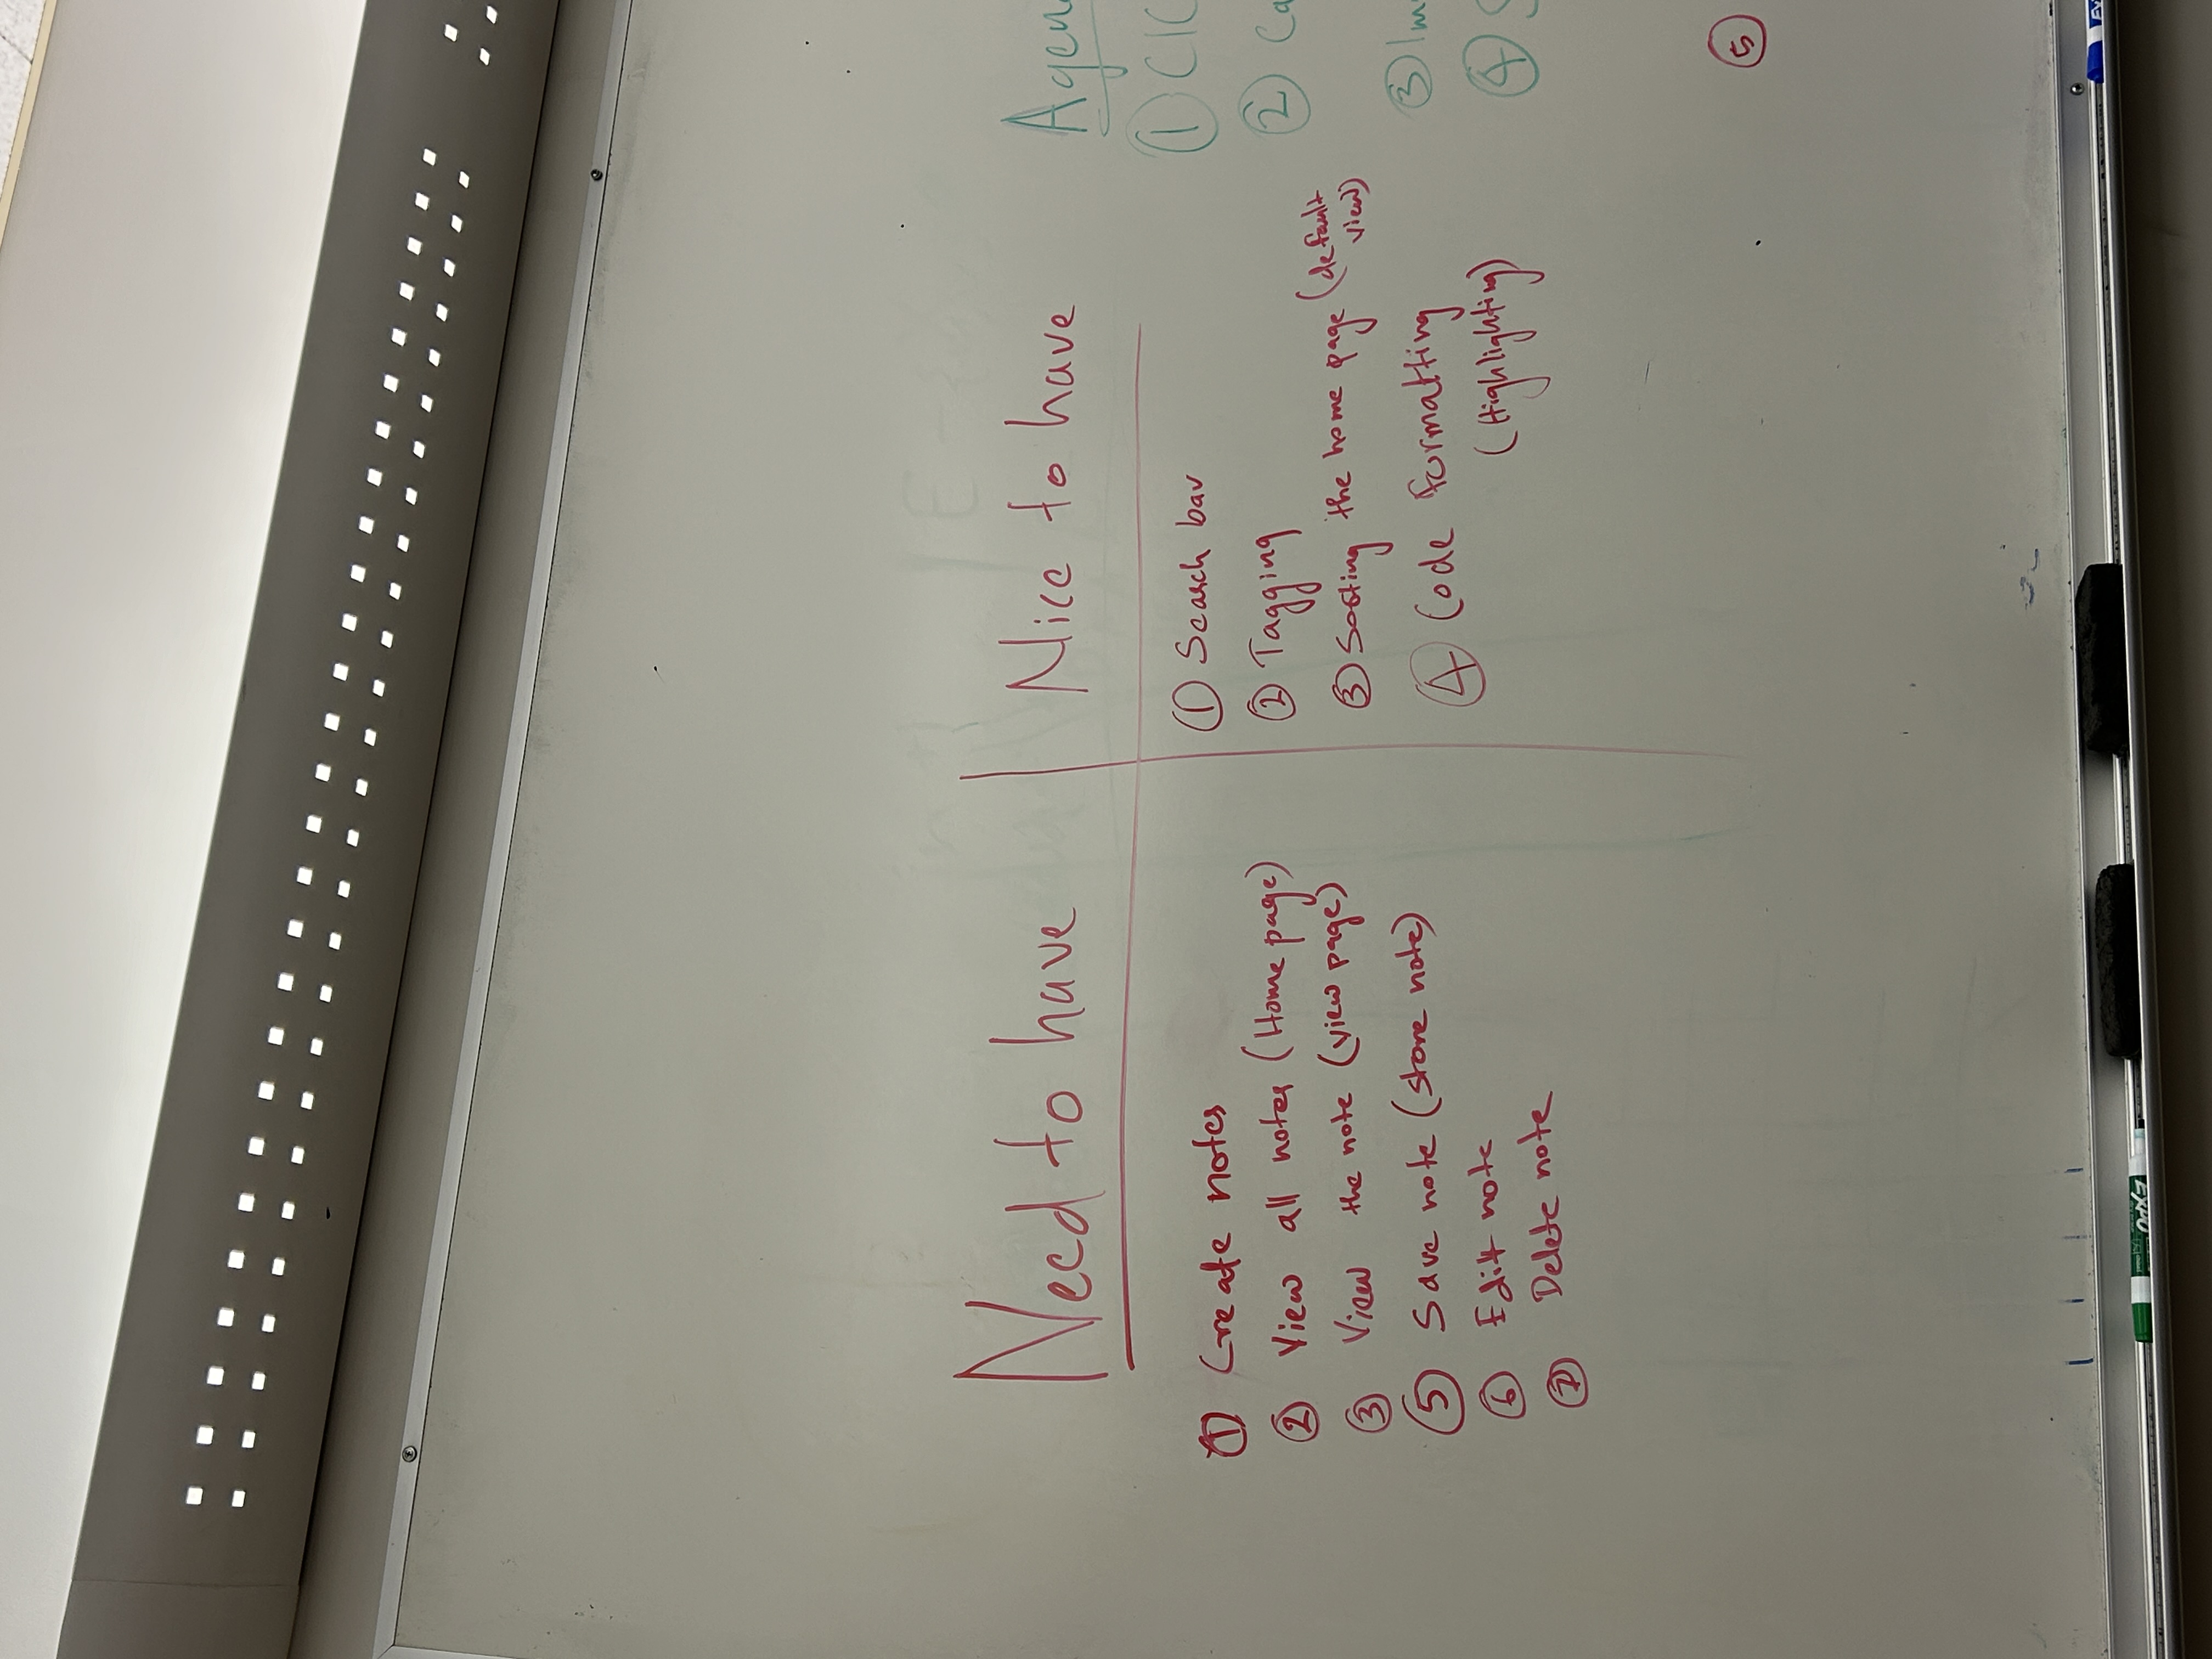 Need to have
① Create notes
② View all notes (Home page)
③ View the note (view page)
⑤ Save note (store note)
⑥ Edit note
⑦ Delete note
Nice to have
① Search bar
② Tagging
③ Sorting the home page (default
view)
④ Code formatting
(Highlighting)
Agen
① CIC
② Ca
③ Im
④ S
⑤
EXPO